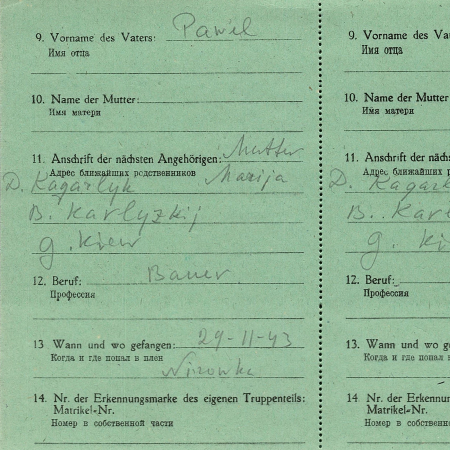 9. Vorname des Vaters: Pawil
Имя отца
10. Name der Mutter:
Имя матери
11. Anschrift der nächsten Angehörigen: Mutter
Адрес ближайших родственников Marija
D. Kagarlyk
B. Karlyzkij
g. Kiew
12. Beruf: Bauer
Профессия
13 Wann und wo gefangen: 29-11-43
Когда и где попал в плен
Nirowka
14. Nr. der Erkennungsmarke des eigenen Truppenteils:
Matrikel-Nr.
Номер в собственной части
9. Vorname des Va
Имя отца
10. Name der Mutter
Имя матери
11. Anschrift der näch
Адрес ближайших р
D. Kagar
B. Kar
g. Ki
12. Beruf:
Профессия
13. Wann und wo ge
Когда и где попал в
14. Nr. der Erkennun
Matrikel-Nr.
Номер в собственно